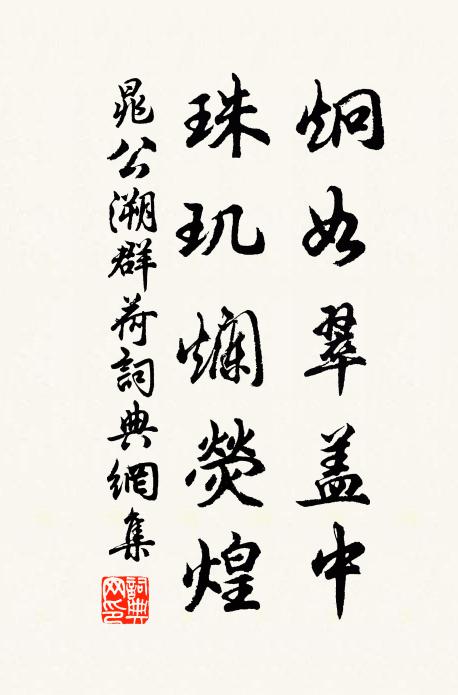 炯如翠盖中
珠玑爛熒煌
晁公溯群荷詞典網集
詞典網印